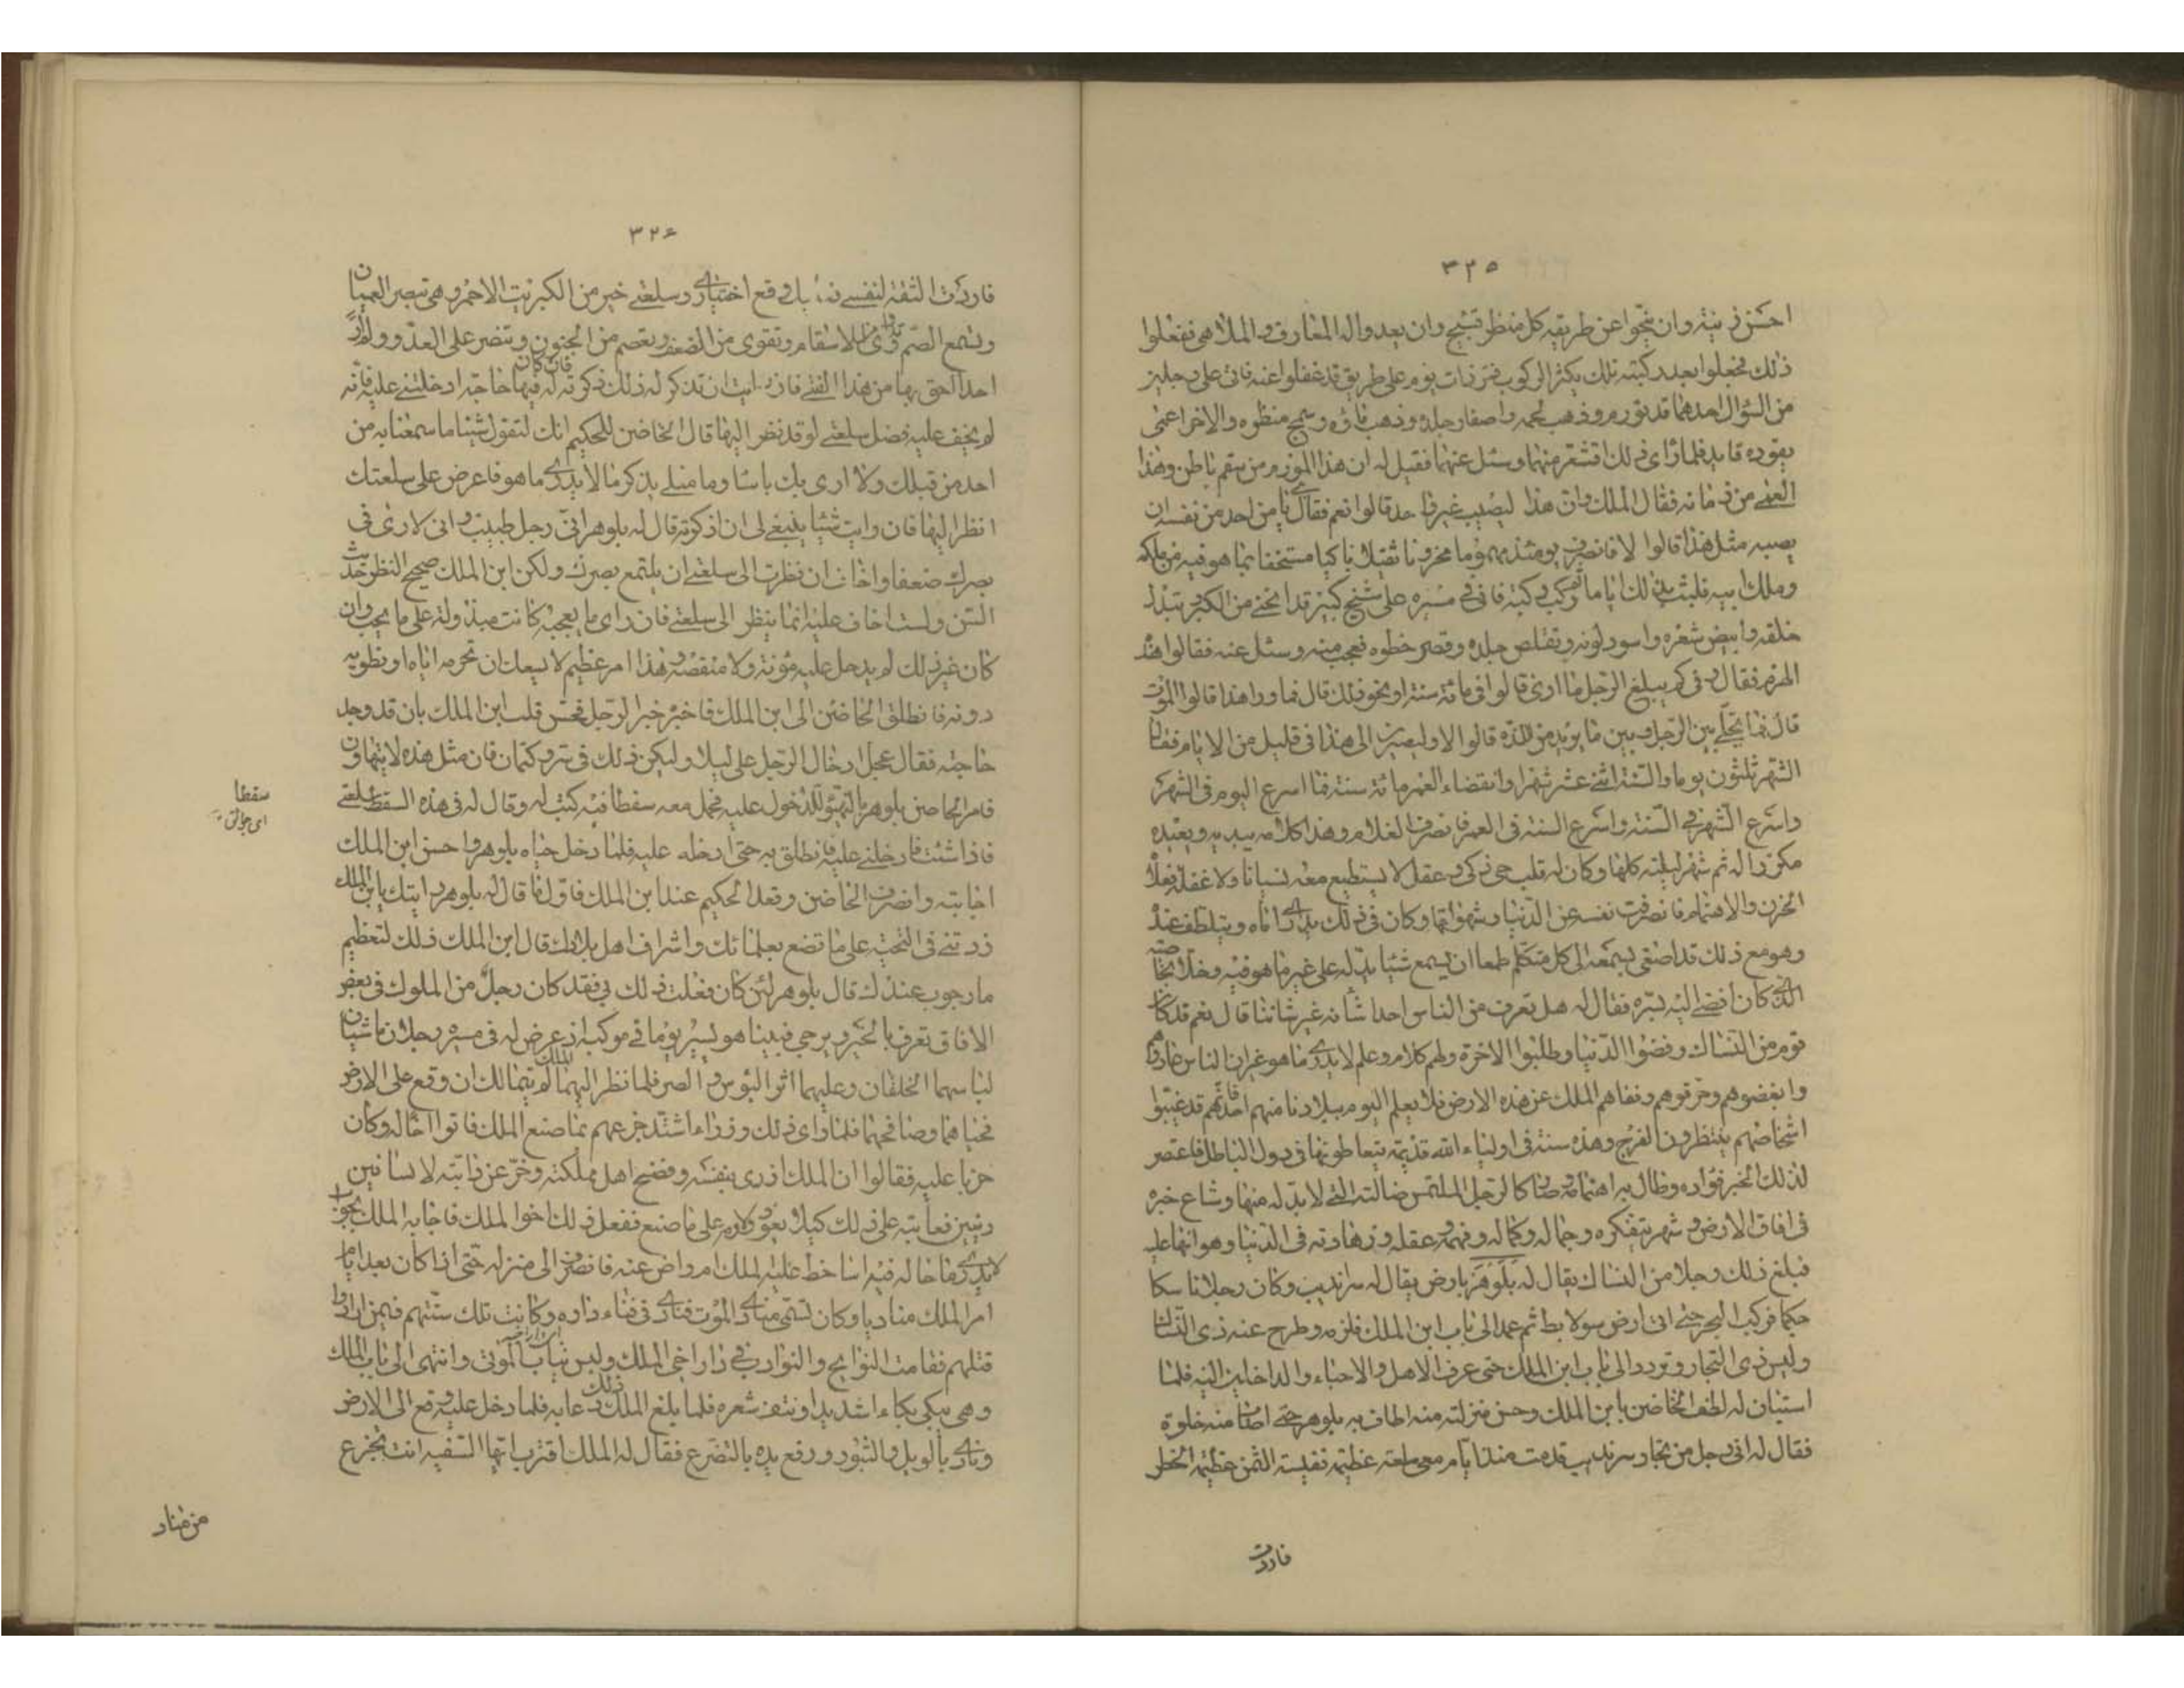 ٣٢٥
احسن زينته وان ينحوا عن طريقه كل منظر قبيح وان يعدوا له المعازف و الملاهي ففعلوا
ذلك فجعل بعد ركبته تلك يكثر الركوب فمر ذات يوم على طريق قد غفلوا عنه فاتى على رجلين
من السؤال احدهما قد تورم وذهب لحمه واصفار جلده وذهب ماؤه وسمج منظره والاخر اعمى
يقوده قايد فلما راى ذلك اقشعر منهما وسئل عنهما فقيل له ان هذا المورم من سقم باطن وهذا
العمى من زمانة فقال الملك وان هذا ليصيب غير واحد قالوا نعم فقال يا من احد من نفسه ان
يصيبه مثل هذا قالوا لا فانصرف يومئذ مهموما محزونا ثقيلا باكيا مستخفا بما هو فيه من ملكه
وملك ابيه فلبث بذلك اياما ثم ركب ركبة فاتى في مسيره على شيخ كبير قد انحنى من الكبر وتبدل
خلقه وابيض شعره واسود لونه وتقلص جلده وقصر خطوه فعجب منه وسئل عنه فقالوا هذا
الهرم فقال وفي كم يبلغ الرجل ما ارى قالوا في مائة سنة او نحو ذلك قال فما وراء هذا قالوا الموت
قال فما يخلى بين الرجل وبين ما يريد من المدة قالوا لا وليصيرن الى هذا في قليل من الايام فقال
الشهر ثلثون يوما والسنة اثنى عشر شهرا وانقضاء العمر مائة سنة فما اسرع اليوم في الشهر
واسرع الشهر في السنة واسرع السنة في العمر فانصرف الغلام وهذا كلامه يبديه ويعيده
مكررا له ثم سهر ليلته كلها وكان له قلب حي زكي وعقل لا يستطيع معه نسيانا ولا غفلة فعلاه
الحزن والاهتمام فانصرفت نفسه عن الدنيا وشهواتها وكان في ذلك يدارى اباه ويتلطف عنده
وهو مع ذلك قد اصغى بسمعه الى كل متكلم طمعا ان يسمع شيئا يدله على غير ما هو فيه وخلا بحاضنه
الذي كان افضى اليه بسره فقال له هل تعرف من الناس احدا شانه غير شاننا قال نعم قد كان
قوم من النساك رفضوا الدنيا وطلبوا الاخرة ولهم كلام وعلم لا يدرى ما هو غير ان الناس عادوهم
وابغضوهم وحرقوهم ونفاهم الملك عن هذه الارض فلا يعلم اليوم ببلادنا منهم احد فانهم قد غيبوا
اشخاصهم ينتظرون الفرج وهذه سنة في اولياء الله قديمة يتعاطونها في دول الباطل فاعتصر
لذلك الخبر فؤاده وطال به اهتمامه وصار كالرجل الملتمس ضالته التي لا بد له منها وشاع خبره
في افاق الارض وشهر بتفكره وجماله وكماله وفهمه وعقله وزهادته في الدنيا وهوانها عليه
فبلغ ذلك رجلا من النساك يقال له بلوهر بارض يقال له سرانديب وكان رجلا ناسكا
حكيما فركب البحر حتى اتى ارض سولابط ثم عمد الى باب ابن الملك فلزمه وطرح عنه زى النساك
ولبس زى التجار وتردد الى باب ابن الملك حتى عرف الاهل والاحباء والداخلين اليه فلما
استبان له لطف الحاضن بابن الملك وحسن منزلته منه اطاف به بلوهر حتى اصاب منه خلوة
فقال له اني رجل من تجار سرنديب قدمت منذ ايام ومعي سلعة عظيمة نفيسة الثمن عظيمة الخطر
فاردت
٣٢٦
فاردت الثقة لنفسي فعليك وقع اختياري وسلعتي خير من الكبريت الاحمر وهي تبصر العميان
وتسمع الصم وتداوى من الاسقام وتقوى من الضعف وتعصم من الجنون وتنصر على العدو ولم ار
احدا احق بها من هذا الفتى فان رايت ان تذكر له ذلك ذكرته فان كان له فيها حاجة ادخلتنى عليه فانه
لم يخف عليه فضل سلعتي لو قد نظر اليها قال الحاضن للحكيم انك لتقول شيئا ما سمعنا به من
احد من قبلك ولا ارى بك باسا وما مثلى يذكر ما لا يدرى ما هو فاعرض على سلعتك
انظر اليها فان رايت شيئا ينبغي لي ان اذكره ذكرته قال له بلوهر انى رجل طبيب وانى لارى في
بصرك ضعفا واخاف ان نظرت الى سلعتي ان يلتمع بصرك ولكن ابن الملك صحيح النظر حدث
السن ولست اخاف عليه انما ينظر الى سلعتي فان راى ما يعجبه كانت مبذولة على ما يحب وان
كان غير ذلك لم يدخل عليه مؤنة ولا منقصة وهذا امر عظيم لا يسعك ان تحرمه اياه او تطويه
دونه فانطلق الحاضن الى ابن الملك فاخبره خبر الرجل فحس قلب ابن الملك بان قد وجد
حاجته فقال عجل ادخال الرجل على ليلا وليكن ذلك في سر وكتمان فان مثل هذه لا يتهاون
فامر الحاضن بلوهر بالتهيؤ للدخول عليه فحمل معه سفطا فيه كتب له وقال له في هذه السفط سلعتي
فاذا شئت فادخلنى عليه فانطلق به حتى ادخله عليه فلما دخل حياه بلوهر واحسن ابن الملك
اجابته وانصرف الحاضن وقعد الحكيم عند ابن الملك فاول ما قال له بلوهر رايتك يابن الملك
زدتنى في التحية على ما تصنع بعلمائك واشراف اهل بلادك قال ابن الملك ذلك لتعظيم
ما رجوت عندك قال بلوهر لئن كان فعلت ذلك بي فقد كان رجل من الملوك في بعض
الافاق يعرف بالخير ويرجى فبينا هو يسير يوما في موكبه اذ عرض له في مسيره رجلان ماشيان
لباسهما الخلقان وعليهما اثر البؤس و الضر فلما نظر اليهما الملك لم يتمالك ان وقع على الارض
فحياهما وصافحهما فلما راى ذلك وزراءه اشتد جزعهم بما صنع الملك فاتوا اخا له وكان
جريا عليه فقالوا ان الملك ازرى بنفسه وفضح اهل مملكته وخر عن دابته لانسانين
دنيين فعاتبه على ذلك كيلا يعود ولمه على ما صنع ففعل ذلك اخوا الملك فاجابه الملك بجواب
لا يدرى ما حاله فيه اساخط عليه الملك ام راض عنه فانصرف الى منزله حتى اذا كان بعد ايام
امر الملك مناديا وكان يسمى منادى الموت فنادى في فناء داره وكانت تلك سنتهم فيمن ارادوا
قتله فقامت النوائح والنوادب في دار اخي الملك ولبس ثياب الموتى وانتهى الى باب الملك
وهي يبكي بكاء اشديدا ونتف شعره فلما بلغ الملك ذلك دعا به فلما دخل عليه وقع الى الارض
ونادى بالويل والثبور ورفع يده بالتضرع فقال له الملك اقترب ايها السفيه انت تجزع
سفطا
اى جوالق
من مناد